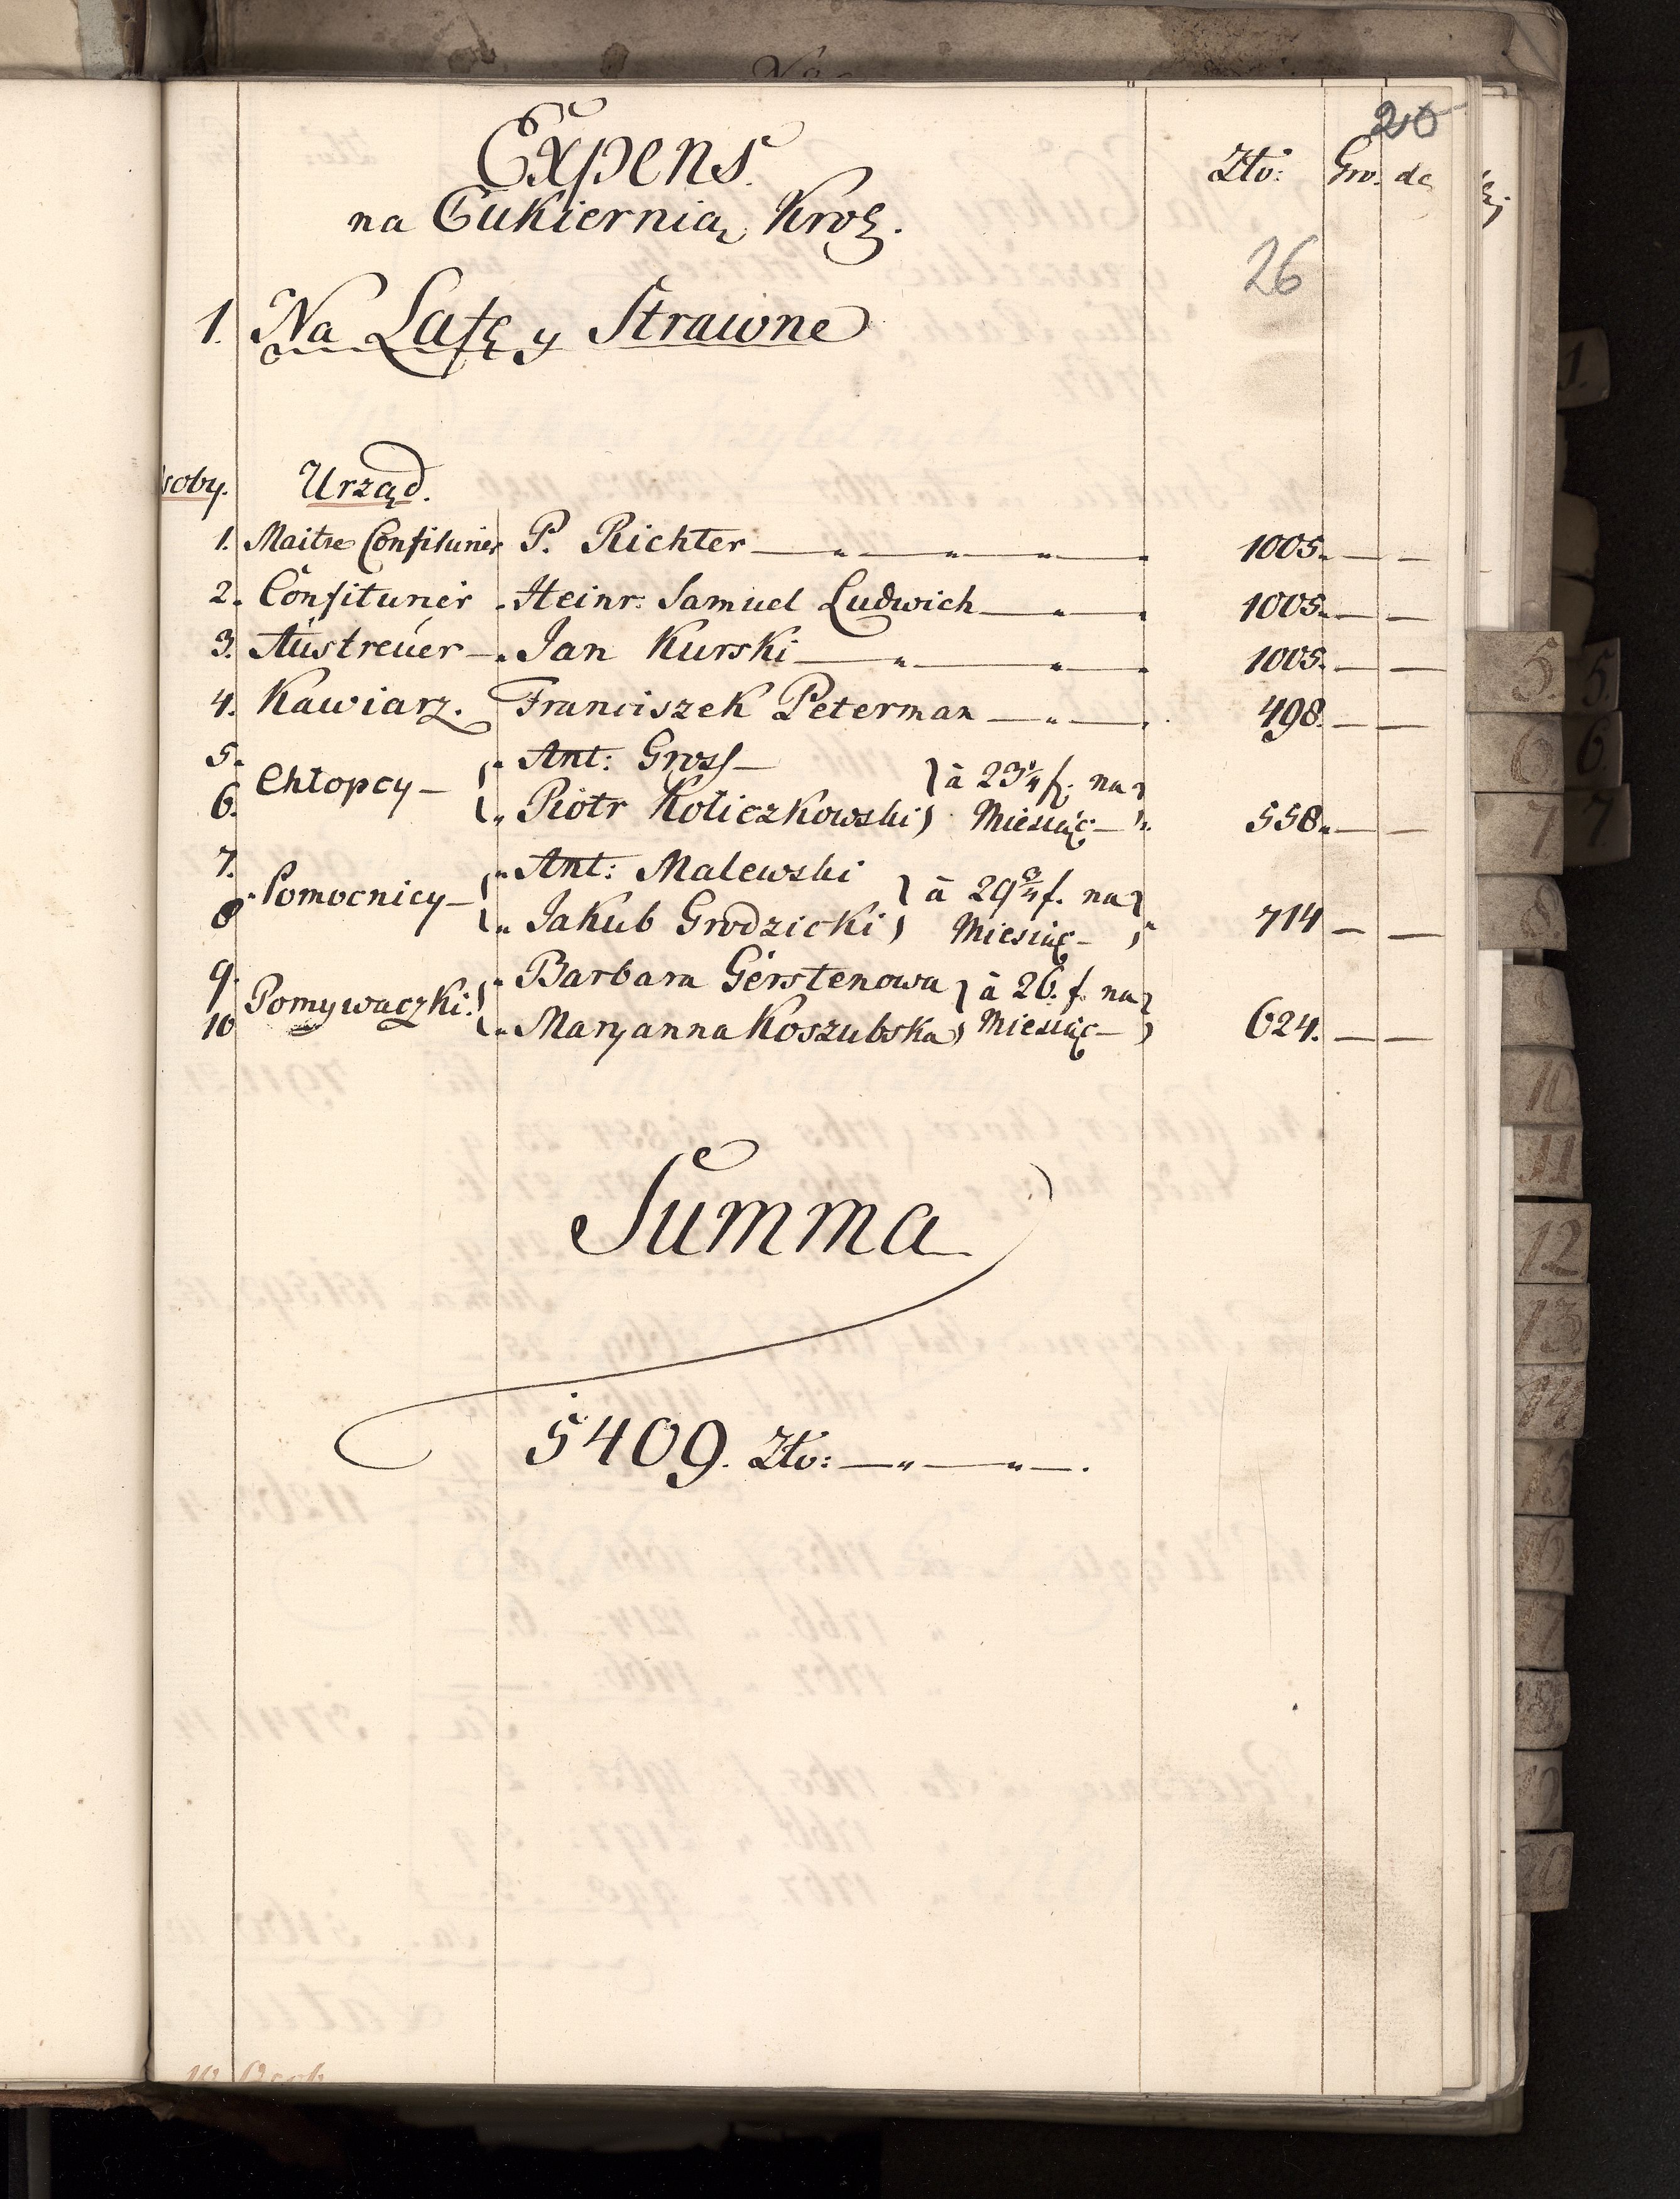 20
Expens
Zło: Gro. de
na Cukiernią Kros.
26
1. Na Lafę y Strawne
soby. Urząd.
1. Maitre Confiturier P. Richter 1005. — —
2. Confiturier Heinr: Samuel Ludwich 1005. — —
3. Austreuer Jan Kurski 1005. — —
4. Kawiarz. Franciszek Peterman 498. — —
5. Ant: Gross
Chłopcy à 23¼ f. na
6. Piotr Koliczkowski Miesiąc 558. — —
7. Ant: Malewski
Pomocnicy à 29¾ f. na
8 Jakub Grodzicki Miesiąc 714 — —
9. Barbara Gerstenowa à 26. f. na
Pomywaczki.
10 Maryanna Koszubska Miesiąc 624. — —
Summa
5409. Zło:
5.
5.
6
6.
7
7.
8.
10
11
12
13
14